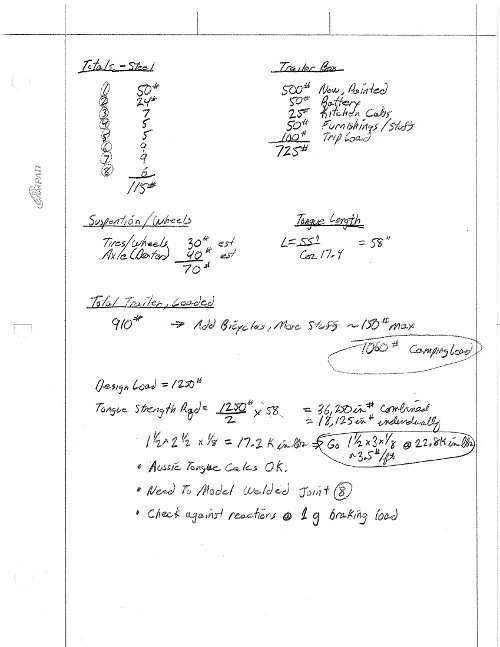 Totals - Steel
① 50#
② 24#
③ 7
④ 5
⑤ 5
⑥ 9
⑦ 9
⑧ 6
115#
Trailer Box
500# Now, Painted
50# Battery
25# Kitchen Cabs
50# Furnishings/Stuff
100# Trip Load
725#
Suspention/Wheels
Tires/Wheels 30# est
Axle (Dexter) 40# est
70#
Tongue Length
L = 55" / Cos 17.4 = 58"
Total Trailer, Loaded
910# → Add Bicycles, More Stuff ~150# max
1060# Camping Load
Design Load = 1250#
Tongue Strength Rqd = 1250# / 2 × 58 = 36,250 in# combined
= 18,125 in# individually
1 1/2 × 2 1/2 × 1/8 = 17.2 K in lbs → Go 1 1/2 × 3 × 1/8 @ 22.8 K in lbs
~3.5#/ft
• Aussie Tongue Calcs OK.
• Need To Model Welded Joint ⑧
• Check against reactions @ 1 g braking load